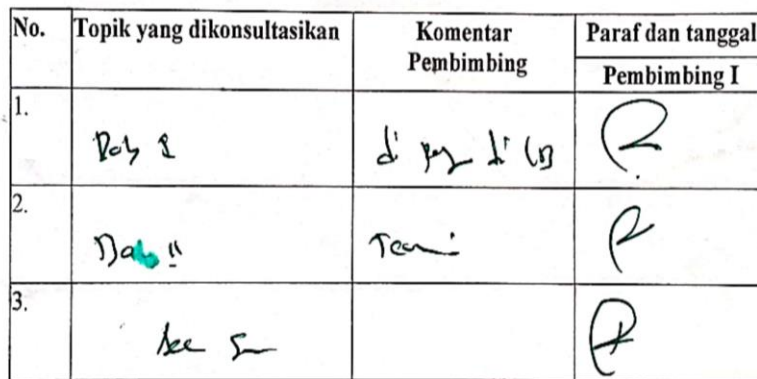 No. Topik yang dikonsultasikan Komentar Pembimbing Paraf dan tanggal
Pembimbing I
1.
Bab I di di
2.
Bab II Teori
3.
Acc